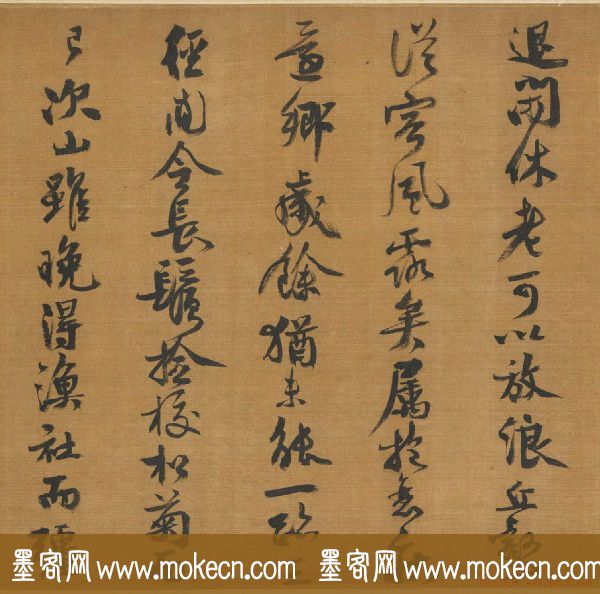 退閒休老可以放浪丘壑
從容風露矣屬抱衰
還鄉歲餘猶未能一跡
徑間令長鬚檢校松菊
已次山雖晚得漁社而
墨客网 www.mokecn.com 墨客网 www.mokecn.com